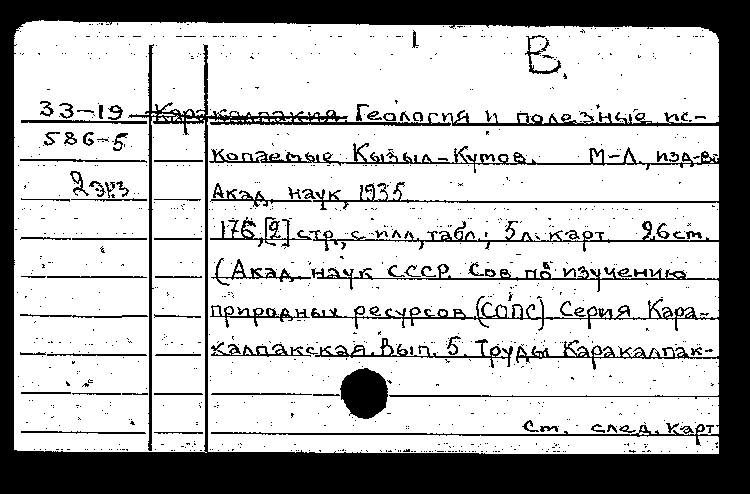 В.
33-19 Каракалпакия Геология и полезные ис-
586-5
копаемые Кызыл-Кумов. М-Л., изд-во
2 экз
Акад. наук, 1935
176, [2] стр., с илл., табл.; 5 л. карт 26 cm.
(Акад. наук СССР. Сов. по изучению
природных ресурсов (СОПС) Серия Кара-
калпакская. Вып. 5. Труды Каракалпак-
см. след. карт